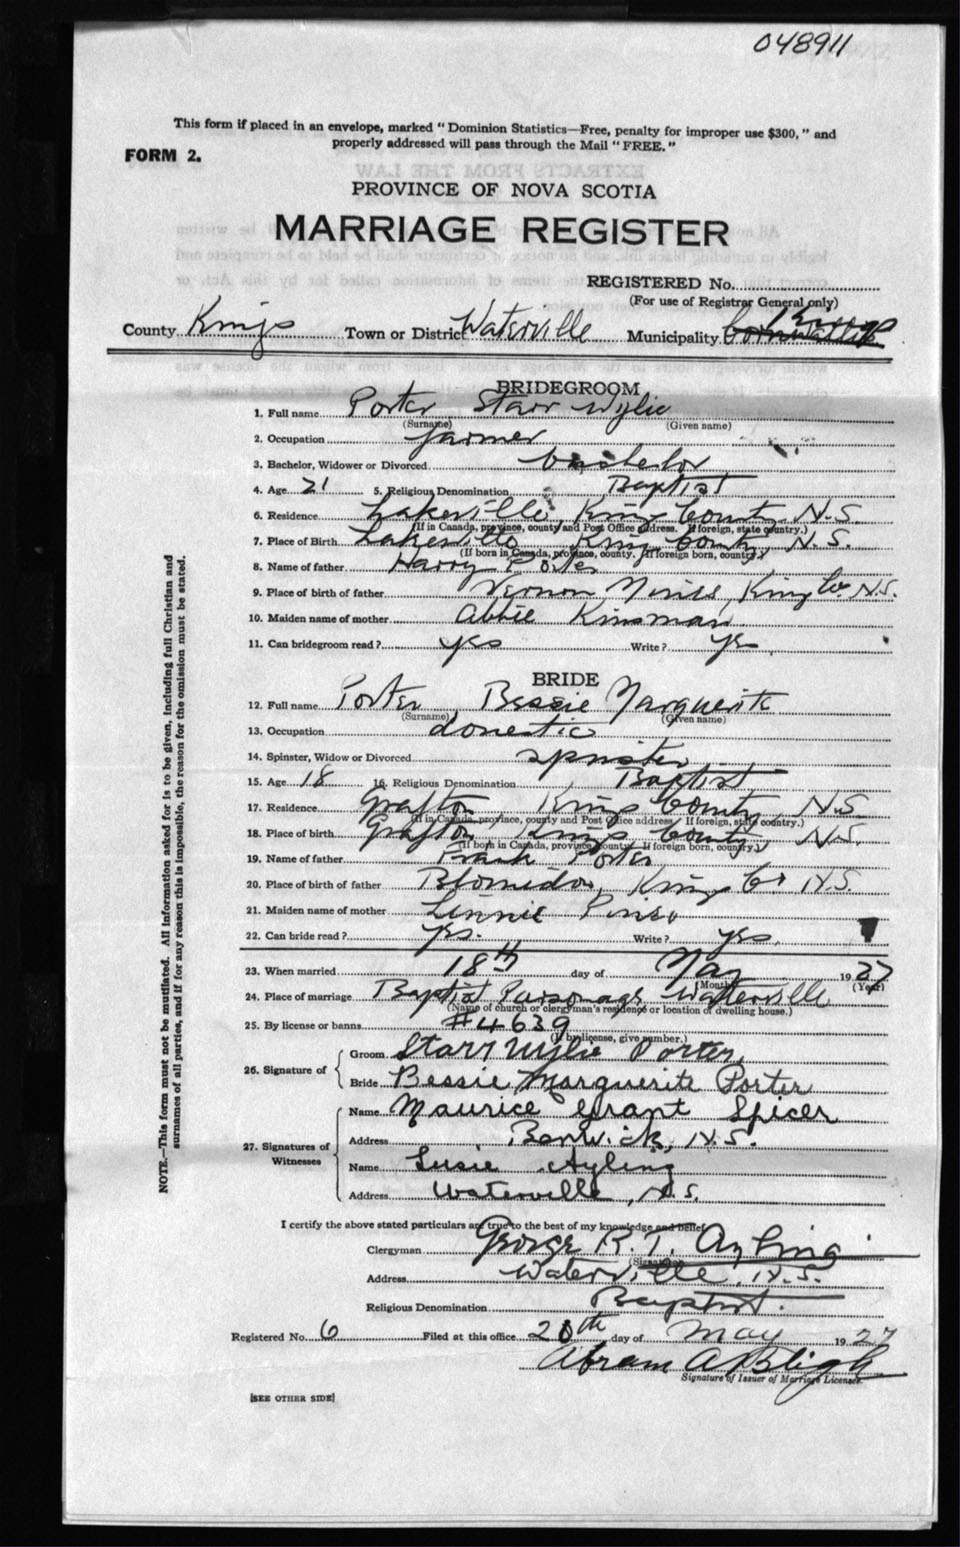 048911
This form if placed in an envelope, marked "Dominion Statistics—Free, penalty for improper use $300," and
properly addressed will pass through the Mail "FREE."
FORM 2.
PROVINCE OF NOVA SCOTIA
MARRIAGE REGISTER
REGISTERED No.
(For use of Registrar General only)
County Kings Town or District Waterville Municipality Kings
BRIDEGROOM
1. Full name Porter Starr Wylie
(Surname) (Given name)
2. Occupation farmer
3. Bachelor, Widower or Divorced bachelor
4. Age 21 5. Religious Denomination Baptist
6. Residence Lakeville, Kings County, N.S.
(If in Canada, province, county and Post Office address. If foreign, state country.)
7. Place of Birth Lakeville Kings County, N.S.
(If born in Canada, province, county. If foreign born, country.)
8. Name of father Harry Porter
9. Place of birth of father Vernon Mines, Kings Co. N.S.
10. Maiden name of mother Abbie Kinsman
11. Can bridegroom read? yes Write? yes
BRIDE
12. Full name Porter Bessie Marguerite
(Surname) (Given name)
13. Occupation domestic
14. Spinster, Widow or Divorced spinster
15. Age 18 16. Religious Denomination Baptist
17. Residence Grafton Kings County, N.S.
(If in Canada, province, county and Post Office address. If foreign, state country.)
18. Place of birth Grafton, Kings County N.S.
(If born in Canada, province, county. If foreign born, country.)
19. Name of father Frank Porter
20. Place of birth of father Blomidon, Kings Co N.S.
21. Maiden name of mother Linnie
22. Can bride read? yes. Write? yes.
23. When married 18th day of May 1927
(Month) (Year)
24. Place of marriage Baptist Parsonage Waterville
(Name of church or clergyman's residence or location of dwelling house.)
25. By license or banns #4639
(If by license, give number.)
26. Signature of Groom Starr Wylie Porter
Bride Bessie Marguerite Porter
27. Signatures of Witnesses Name Maurice Grant Spicer
Address Berwick, N.S.
Name Susie Ayling
Address Waterville, N.S.
I certify the above stated particulars are true to the best of my knowledge and belief.
Clergyman George R. T. Ayling
(Signature)
Address Waterville, N.S.
Religious Denomination Baptist.
Registered No. 6 Filed at this office 20th day of May 1927
Abram A Bligh
Signature of Issuer of Marriage Licenses.
[SEE OTHER SIDE]
NOTE.—This form must not be mutilated. All information asked for is to be given, including full Christian and
surnames of all parties, and if for any reason this is impossible, the reason for the omission must be stated.